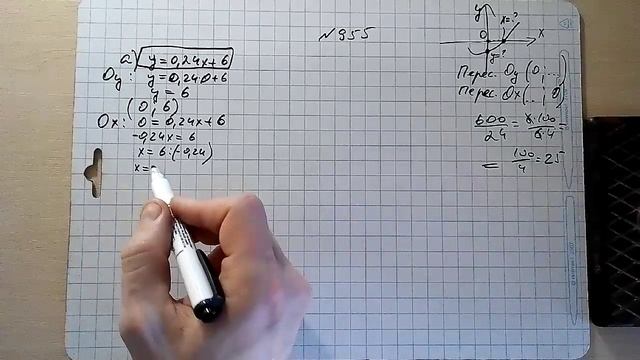 № 955
а) y = 0,24x + 6
Oy: y = 0,24·0 + 6
y = 6
(0 ; 6)
Ox: 0 = 0,24x + 6
-0,24x = 6
x = 6 : (-0,24)
x =
y
x=?
0
x
y=?
Перес. Oy (0; ...)
Перес. Ox (...; 0)
600/24 = 6·100/6·4 =
= 100/4 = 25